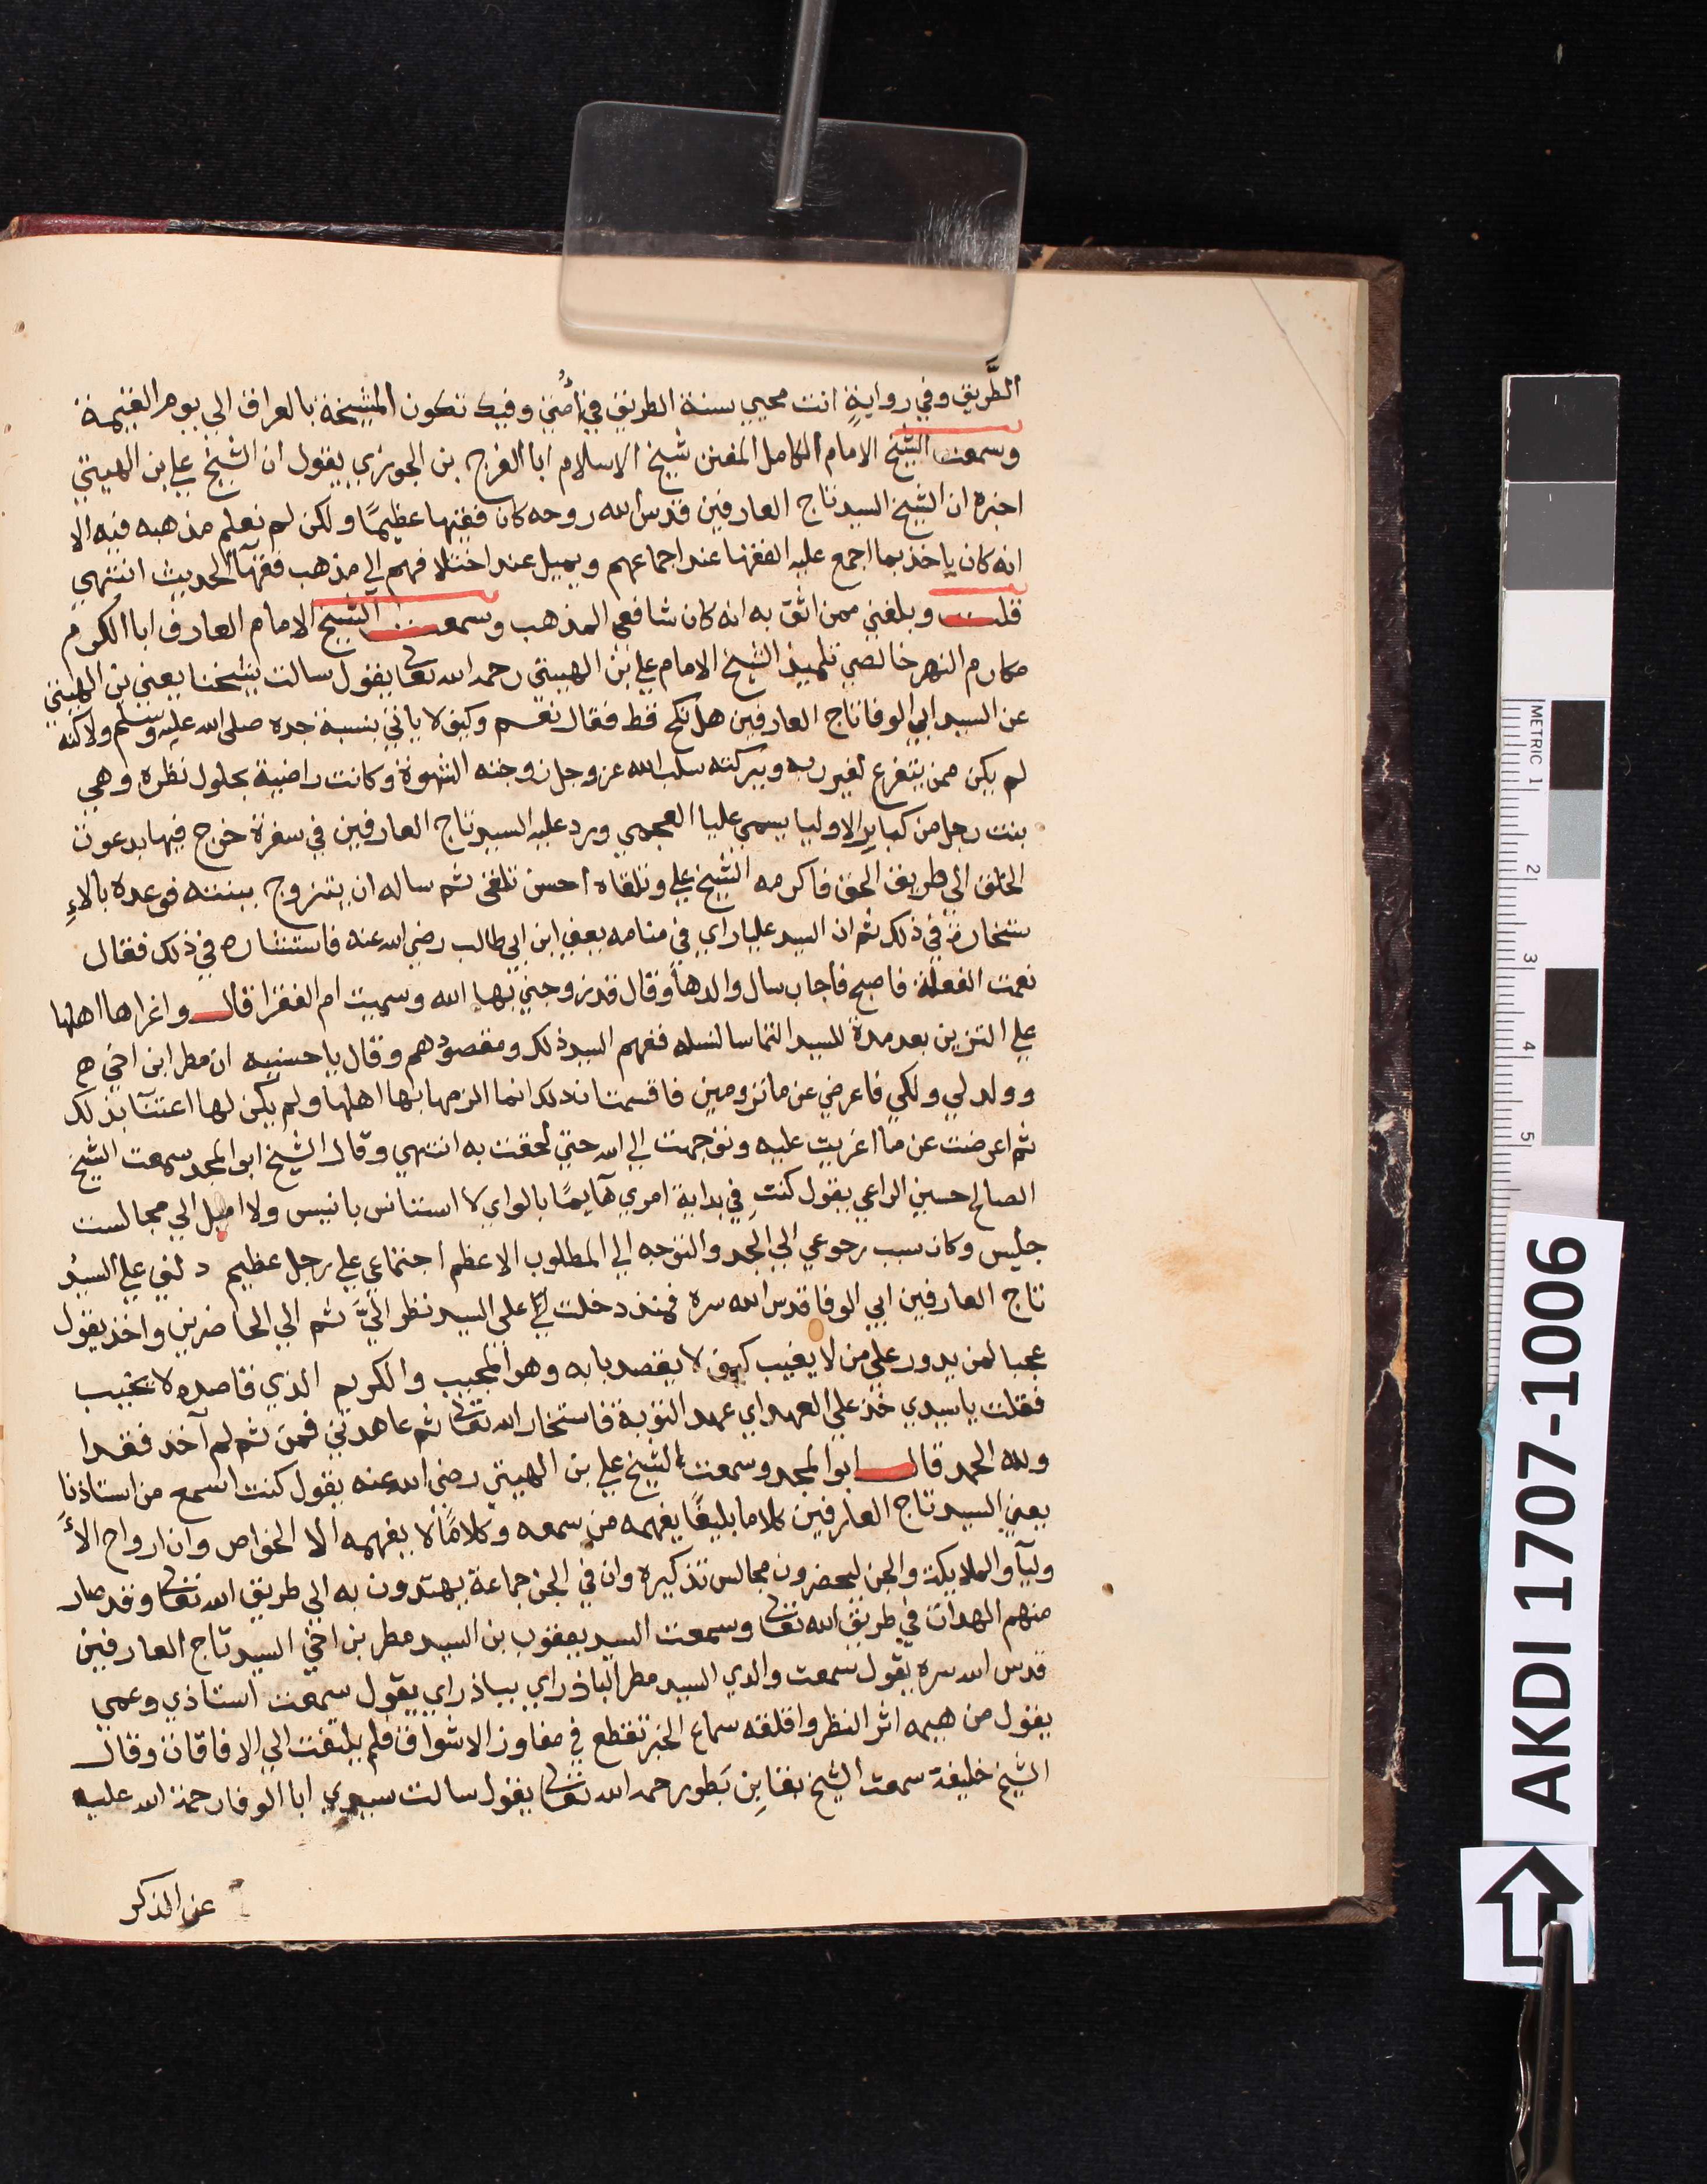 الطَّريق وفي رواية انت محيي سنة الطريق في أُمتي وفيك تكون المشيخة بالعراق الي يوم القيمة
وسمعت الشيخ الامام الكامل المفنن شيخ الاسلام ابا الفرج بن الجوزي يقول ان الشيخ علي بن الهيتي
اخبره ان الشيخ السيد تاج العارفين قدس الله روحه كان فقيها عظيمًا ولكن لم نعلم مذهبه فيه الا
انه كان ياخذ بما اجمع عليه الفقها عند اجماعهم ويميل عند اختلافهم الي مذهب فقهآ الحديث انتهي
قلت وبلغني ممن اثق به انه كان شافعي المذهب وسمعت الشيخ الامام العارف ابا الكرم
مكارم النهر خالصي تلميذ الشيخ الامام علي بن الهيتي رحمه الله تعالى يقول سالت شيخنا يعني بن الهيتي
عن السيد ابي الوفا تاج العارفين هل نكح قط فقال نعم وكيف لا ياتي بنسبة جده صلى الله عليه وسلم ولاكنه
لم يكن ممن يتفرغ لغير ربه وببركته سلب الله عز وجل زوجته الشهوة وكانت راضية بحلول نظره وهي
بنت رجل من كباير الاوليا يسمي عليا العجمي ورد عليه السيد تاج العارفين في سفرة خرج فيها يدعون
الخلق الي طريق الحق فاكرمه الشيخ علي وتلقاه احسن تلقي ثم ساله ان يتزوج ببنته فوعده بالاءِ
ستخارة في ذلك ثم ان السيد عليا راي في منامه يعني ابن ابي طالب رضي الله عنه فاستشاره في ذلك فقال
نعمت الفعلة فاصبح فاجاب سال والدها وقال قد زوجني بها الله وسميت ام الفقرا قال واغراها اهلها
علي التزين بعد مدة للسيد التماسا لنسله ففهم السيد ذلك ومقصودهم وقال يا حسنيه ان مطر ابن اخي هو
وولد لي ولكي فاعرضي عن ما تزومين فاقسمت ان ذلك انما الزمها بها اهلها ولم يكن لها اعتنآ بذلك
ثم اعرضت عن ما اغريت عليه وتوجهت الي الله حتي لحقت به انتهي وقال الشيخ ابو المجد سمعت الشيخ
الصالح حسين الراعي يقول كنت في بداية امري هآيمًا بالواي لا استانس بانيس ولا اميل الي مجالست
جليس وكان سبب رجوعي الي الجد والتوجه الي المطلوب الاعظم اجتماعي علي رجل عظيم دلني علي السيد
تاج العارفين ابي الوفا قدس الله سره فمنذ دخلت علي السيد نظر اليَّ ثم الي الحاضرين واخذ يقول
عجبا لمن يدور علي من لا يغيب كيف لا يقصد بابه وهو المجيب والكريم الذي قاصده لا يخيب
فقلت يا سيدي خذ علي العهد اي عهد التوبة فاستخار الله تعالى ثم عاهدني فمن ثم لم آخذ فقدا
ولله الحمد قال ابو المجد وسمعت الشيخ علي بن الهيتي رضي الله عنه يقول كنت اسمع من استاذنا
يعني السيد تاج العارفين كلاما بليغًا يفهمه من سمعه وكلامًا لا يفهمه الا الخواص وان ارواح الأ
وليآ والملايكة والجن ليحضرون مجالس تذكيره وان في الجن جماعة يهتدون به الي طريق الله تعالى وقد صار
منهم الهدات في طريق الله تعالى وسمعت السيد يعقوب بن السيد مطر بن اخي السيد تاج العارفين
قدس الله سره يقول سمعت والدي السيد مطر الباذراي بباذراي يقول سمعت استاذي وعمي
يقول من هيمه اثر النظر واقلقه سماع الخبر تقطع في مفاوز الاشواق فلم يلتفت الي الافاقات وقال
الشيخ خليفة سمعت الشيخ بقا بن بَطور رحمه الله تعالى يقول سالت سيدي ابا الوفا رحمة الله عليه
عن الذكر
AKDI 1707-1006
METRIC 1 2 3 4 5